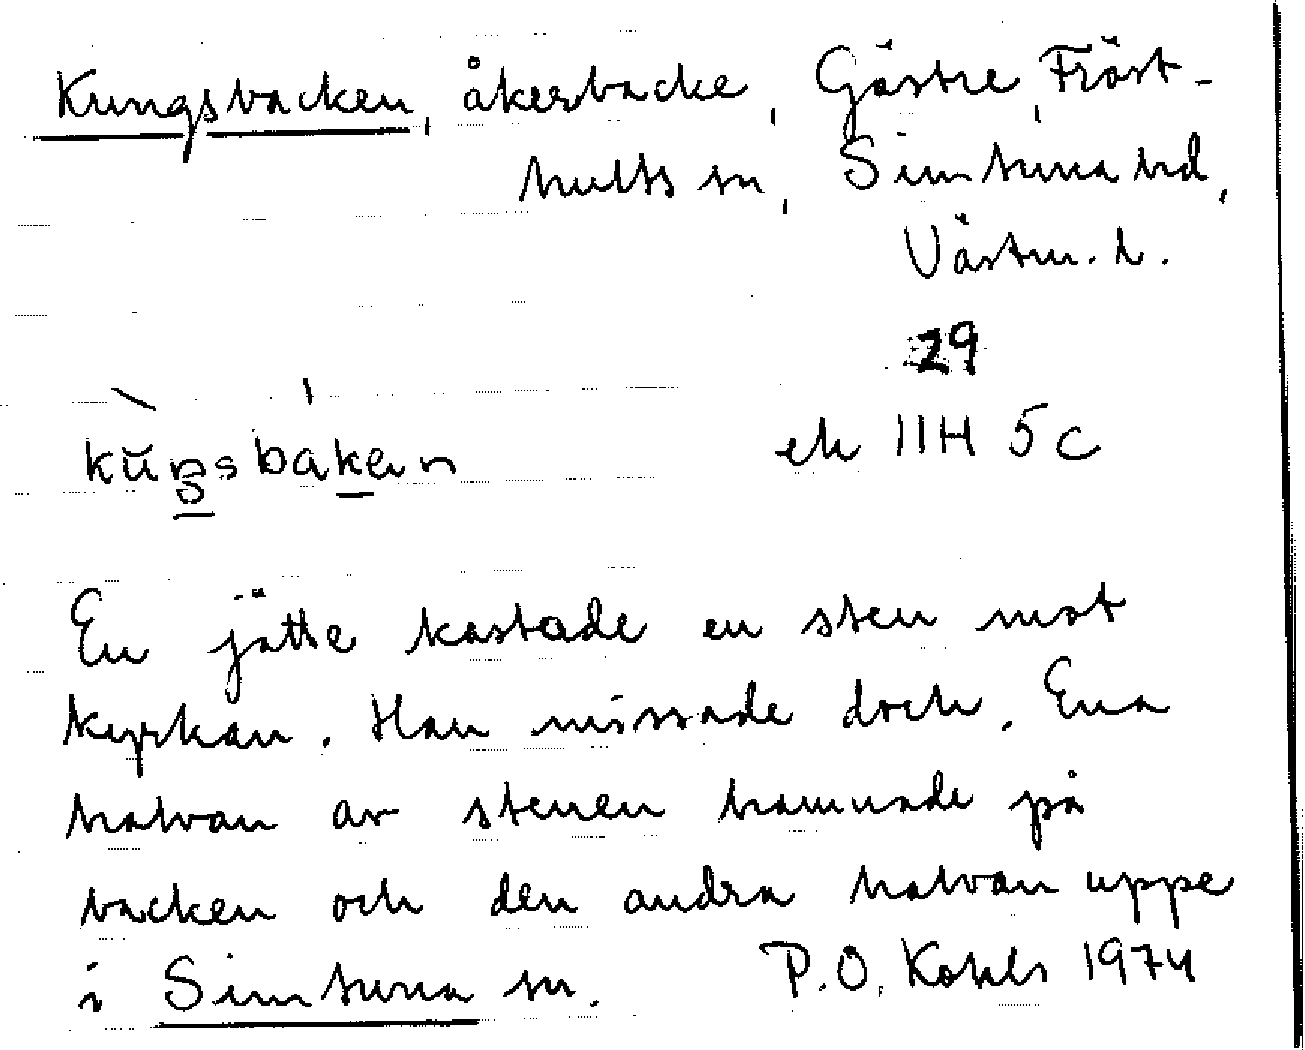 Kungsbacken, åkerbacke, Gästre, Fröst-
hults sn, Simtuna hd,
Västm. l.
29
ek 11H 5c
kuŋsbaken
En jätte kastade en sten mot
kyrkan. Han missade dock. Ena
halvan av stenen hamnade på
backen och den andra halvan uppe
i Simtuna sn. P.O. Kohls 1974